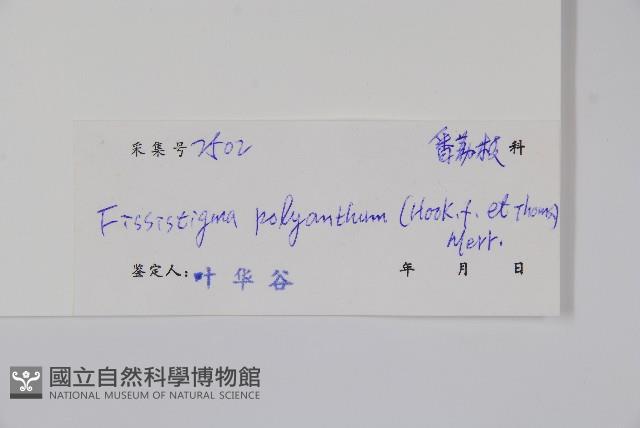 采集号 7502 番荔枝 科
Fissistigma polyanthum (Hook.f. et Thoms)
Merr.
鉴定人：叶华谷 年 月 日
國立自然科學博物館
NATIONAL MUSEUM OF NATURAL SCIENCE